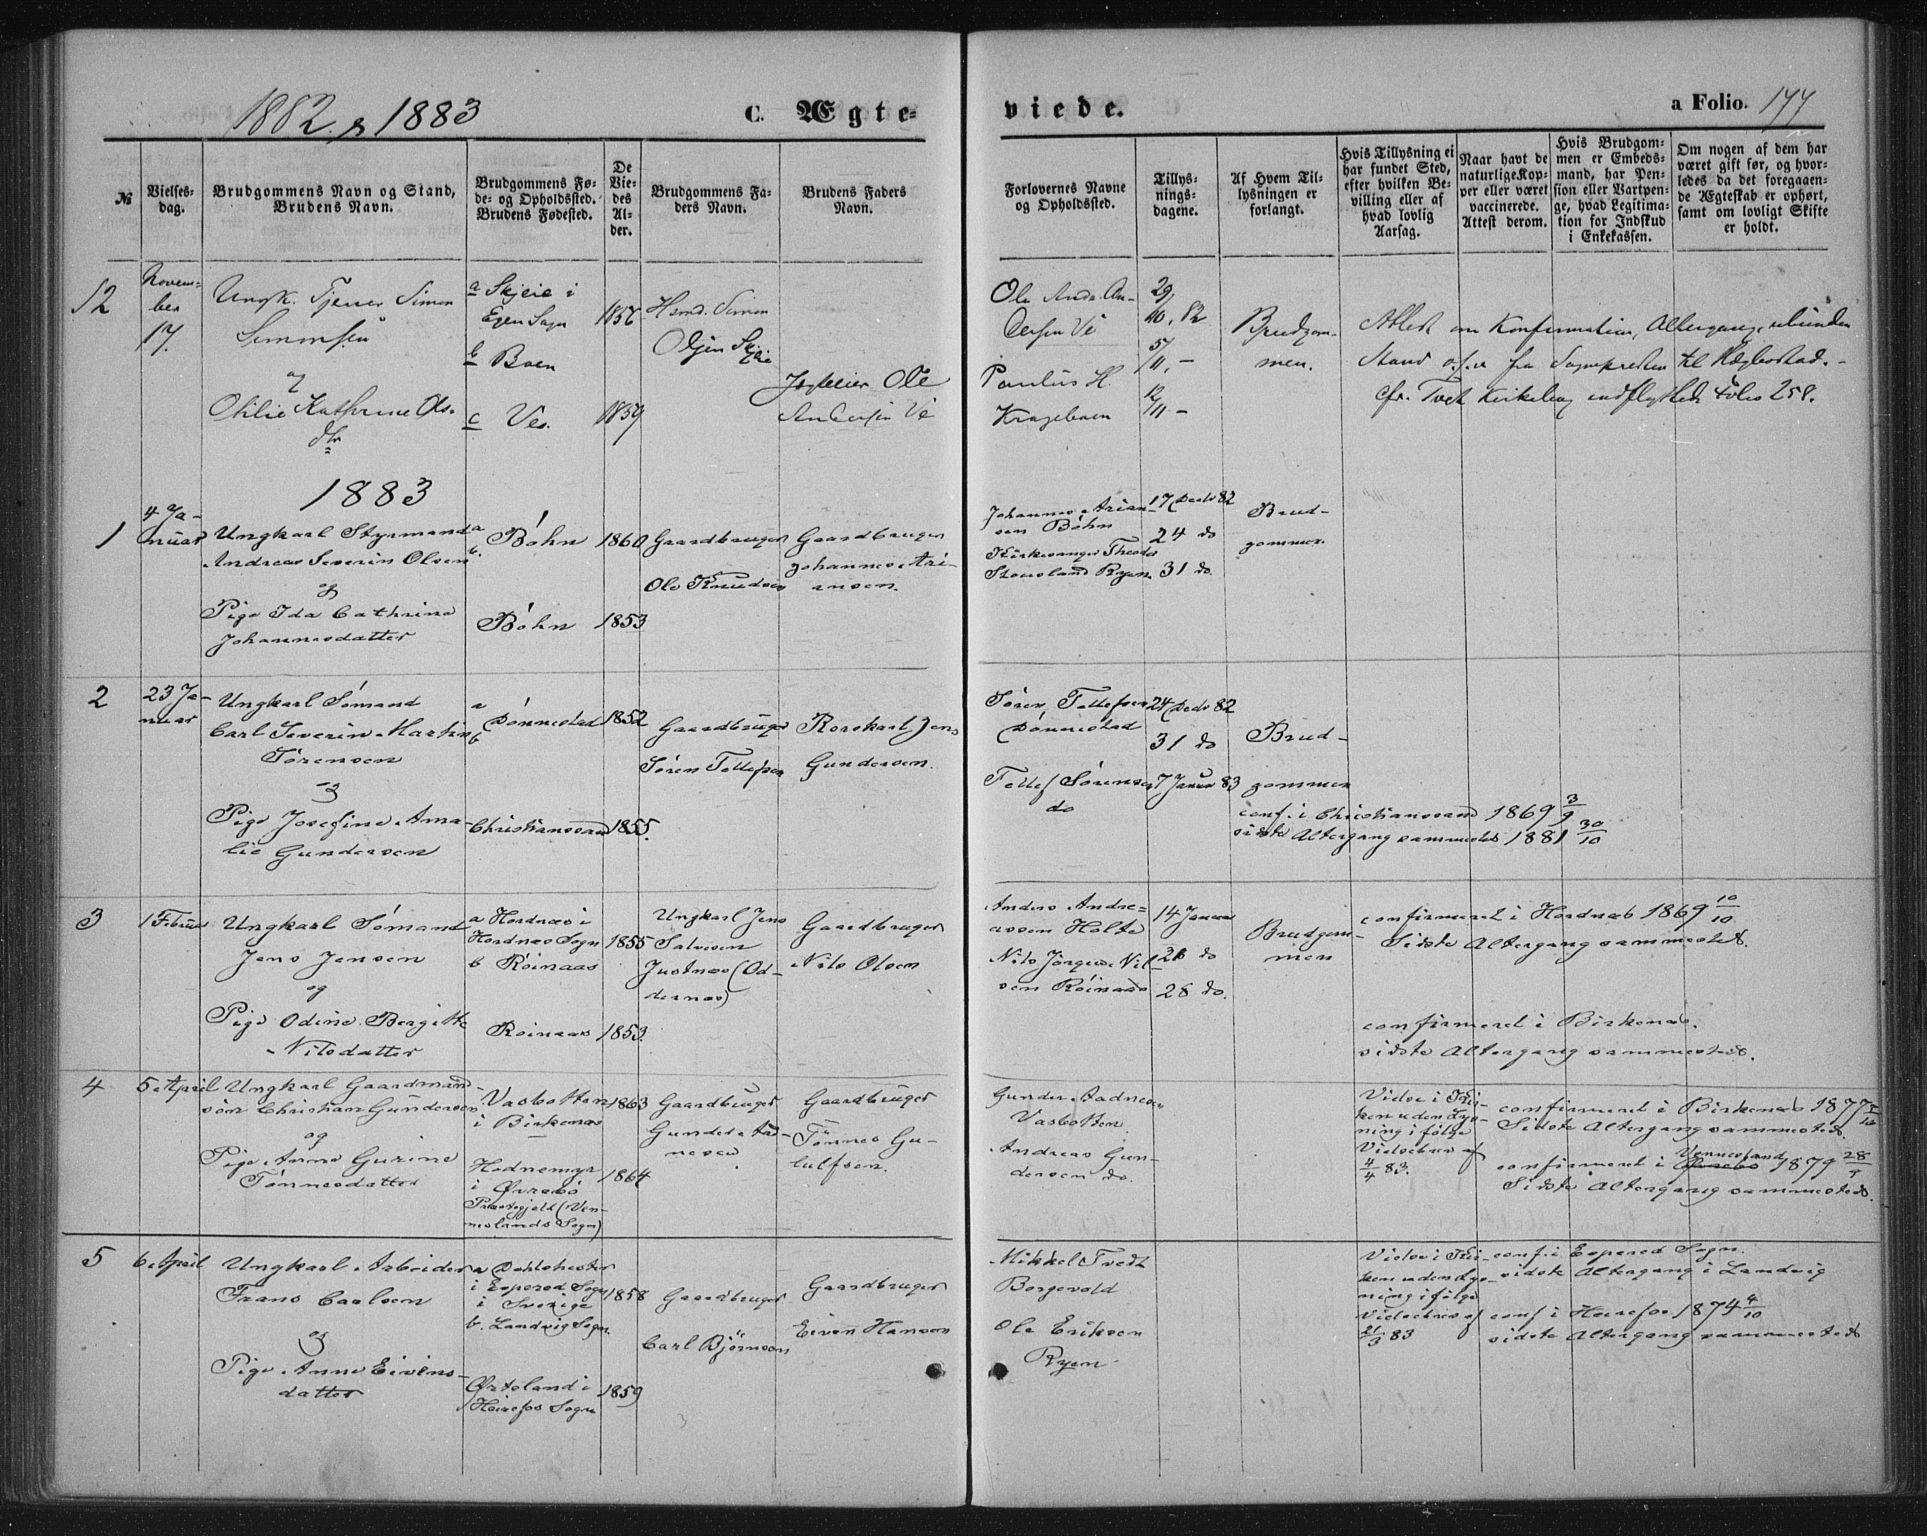 1882. & 1883
C. Ægte-
viede.
a Folio. 177
№
Vielses-
dag.
Brudgommens Navn og Stand,
Brudens Navn.
Brudgommens Fø-
de- og Opholdssted.
Brudens Fødested.
De
Vie-
des
Al-
der.
Brudgommens Fa-
ders Navn.
Brudens Faders
Navn.
Forlovernes Navne
og Opholdssted.
Tillys-
nings-
dagene.
Af Hvem Til-
lysningen er
forlangt.
Hvis Tillysning ei
har fundet Sted,
efter hvilken Be-
villing eller af
hvad lovlig
Aarsag.
Naar havt de
naturlige Kop-
per eller været
vaccinerede.
Attest derom.
Hvis Brudgom-
men er Embeds-
mand, har Pen-
sion eller Vartpen-
ge, hvad Legitima-
tion for Indskud
i Enkekassen.
Om nogen af dem har
været gift før, og hvor-
ledes da det foregaaen-
de Ægteskab er ophørt,
samt om lovligt Skifte
er holdt.
12
Novem-
ber
17.
Ungk. Tjener Simon
Simonsen
og
Othilie Kathrine Ols-
dtr
a Skjeie i
Egen Sogn
b Boen
c Ves.
1856
1859
Hsmd. Simon
Olsen Skjeie
Jægteier Ole
Andersen Ve
Ole Andr. An-
dersen Ve
Paulus H.
Krageboen
29/10, 82
5/11, -
12/11 -
Brudgom-
men.
Attest om Konfirmation, Altergang, ubunden
Stand o.s.v. fra Sognepresten til Hægbostad. -
cfr. Tvet Kirkebog indflyttede Folio 258.
1883
1
4 Ja-
nuar
Ungkarl Styrmand
Andreas Severin Olsen
og
Pige Ida Cathrine
Johannesdatter
a
b.
Bøhn
Bøhn
1860
1853
Gaardbruger
Ole Knudsen
Gaardbruger
Johannes Ari-
ansen.
Johannes Arian-
sen Bøhn
Kirkesanger Theodor
Stousland Ryen
17 Decbr 82
24 do
31 do.
Brud-
gommen
2
23 Ja-
nuar
Ungkarl Sømand
Carl Severin Martin
Sørensen
og
Pige Josefine Ama-
lie Gundersen
a
b
Dønnestad
Christianssand
1852
1855.
Gaardbruger
Søren Tellefsen
Rorskarl Jens
Gundersen.
Søren Tellefsen
Dønnestad
Tellef Sørensen
do
24 Decbr 82
31 do
7 Januar 83
Brud-
gommen
conf. i Christianssand 1869 3/9
sidste Altergang sammesteds 1881 30/10
3
1 Februar
Ungkarl Sømand
Jens Jensen
og
Pige Odine Bergitte
Nilsdatter
a Hordnæs i
Hordnæs Sogn
b Røinaas
Røinaas
1855
1853.
Ungkarl Jens
Salvesen
Justnæs (Od-
dernæs)
Gaardbruger
Nils Olsen
Anders Andre-
assen Holte
Nils Jørgen Nil-
sen Røinaas
14 Januar
21 do
28 do.
Brudgom-
men
confirmeret i Hordnæs 1869 10/10
Sidste Altergang sammesteds.
confirmeret i Birkenæs.
sidste Altergang sammesteds.
4
5 April
Ungkarl Gaardmand-
søn Christian Gundersen
og
Pige Anne Gurine
Tønnesdatter
Vasbotten
i Birkenæs
Hodnemyr
i Øvrebø
Præstegjeld (Ven-
neslands Sogn)
1863
1864
Gaardbruger
Gunder Aad-
nesen
Gaardbruger
Tønnes Gu-
lulfsen.
Gunder Aadnesen
Vasbotten.
Andreas Gun-
dersen do.
Viede i Kir-
ken uden Lys-
ning ifølge
Vielsebrev af
4/4 83.
confirmeret i Birkenæs 1877
Sidste Altergang sammesteds.
Vennesland
confirmeret i Øvrebø 1879 28/9
Sidste Altergang sammesteds.
5
6 April
Ungkarl Arbeider
Frans Carlsen
og
Pige Anne Eivens-
datter
a
i Esperød Sogn
i Sverige
b. Landvig Sogn.
Ørteland i
Heirefos Sogn
1858
1859
Gaardbruger
Carl Bjørnsen
Gaardbruger
Eiven Hansen
Mikkel Tvedt
Borgevold
Ole Eriksen
Ryen
Viede i Kir-
ken uden Lys-
ning ifølge
Vielsebrev af
21/3 83
conf. i Esperød Sogn.
sidste Altergang i Landvig
conf i Heirefos 1874 4/10
sidste Altergang sammesteds